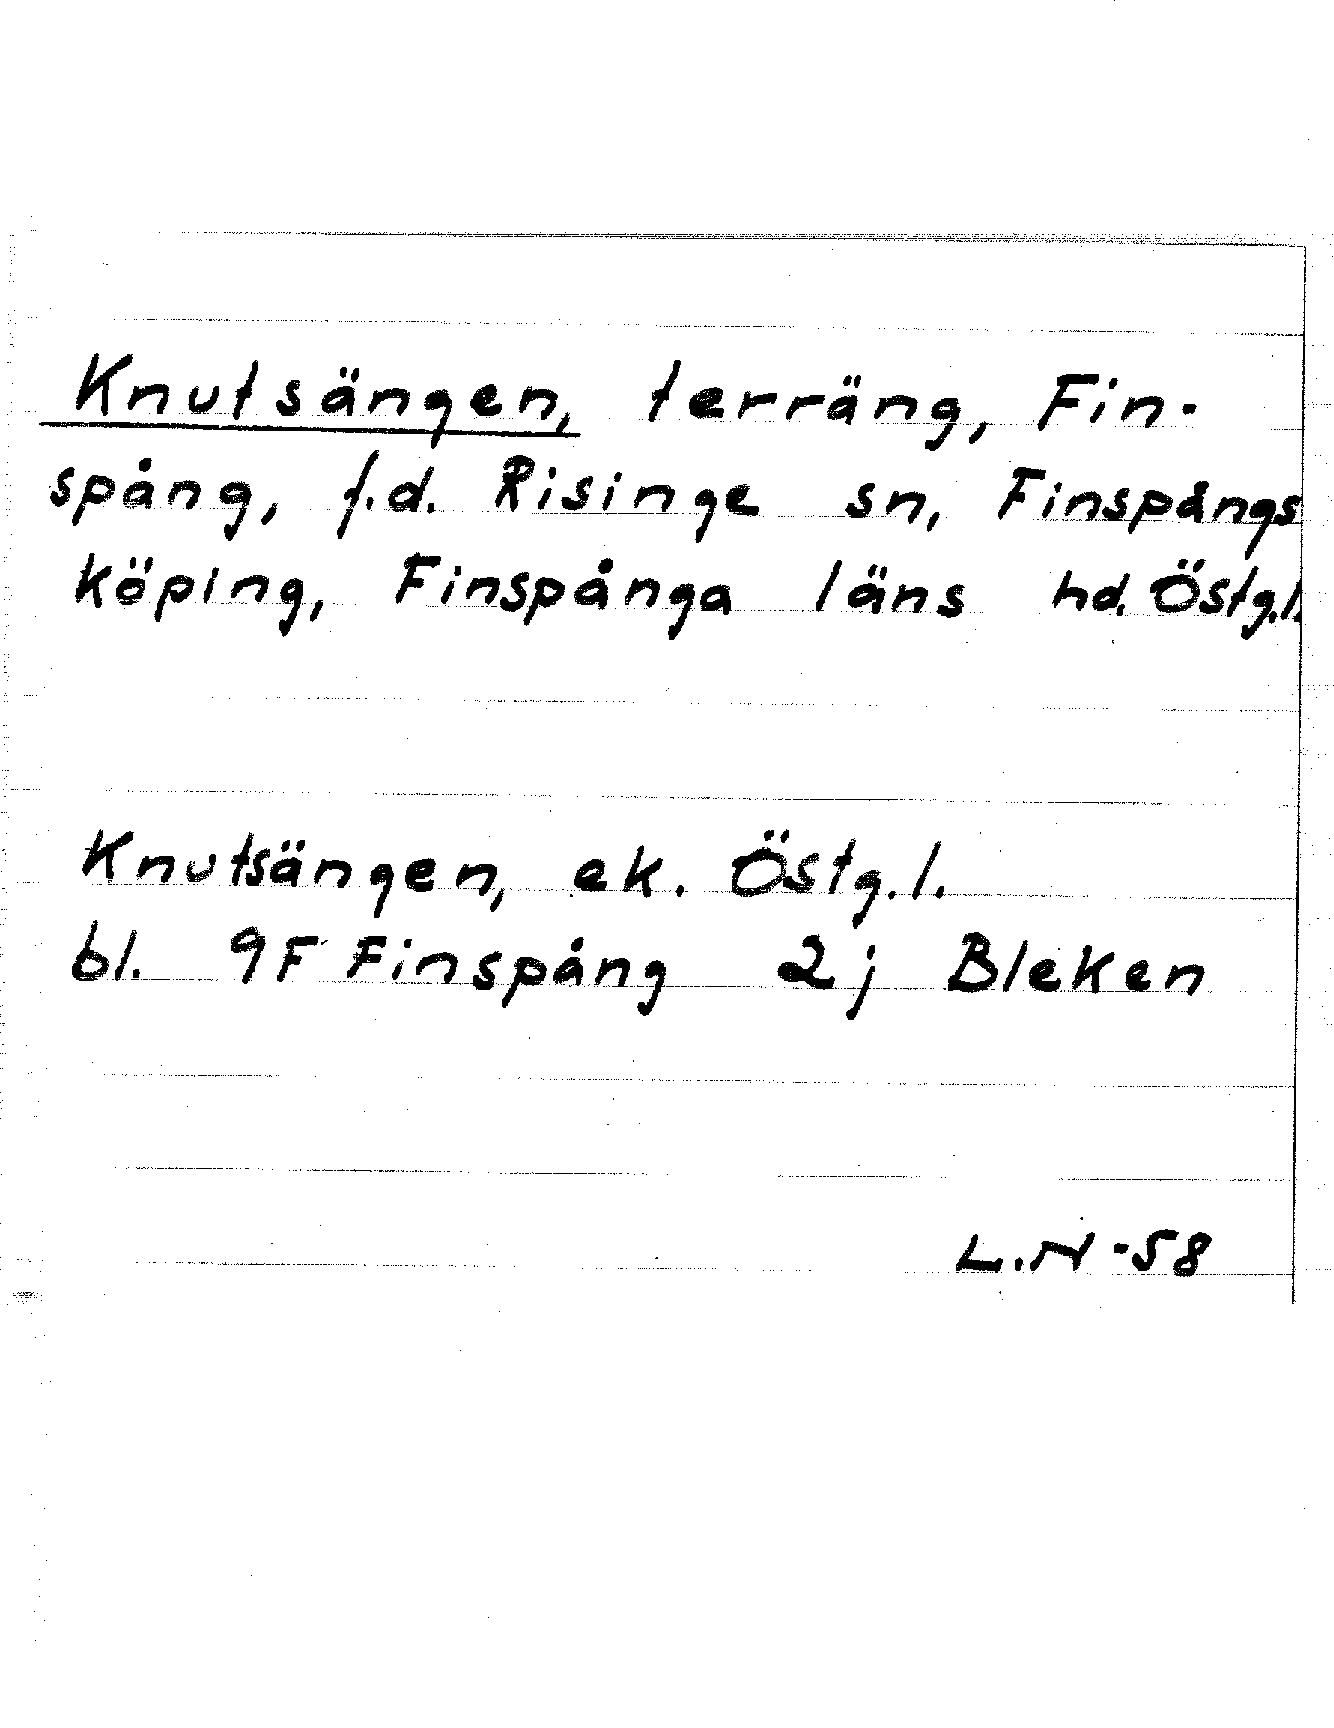 Knutsängen, terräng, Fin-
spång, f.d. Risinge sn, Finspångs
köping, Finspånga läns hd. Östg.l.
Knutsängen, ek. Östg.l.
bl. 9F Finspång 2j Bleken
L.N -58